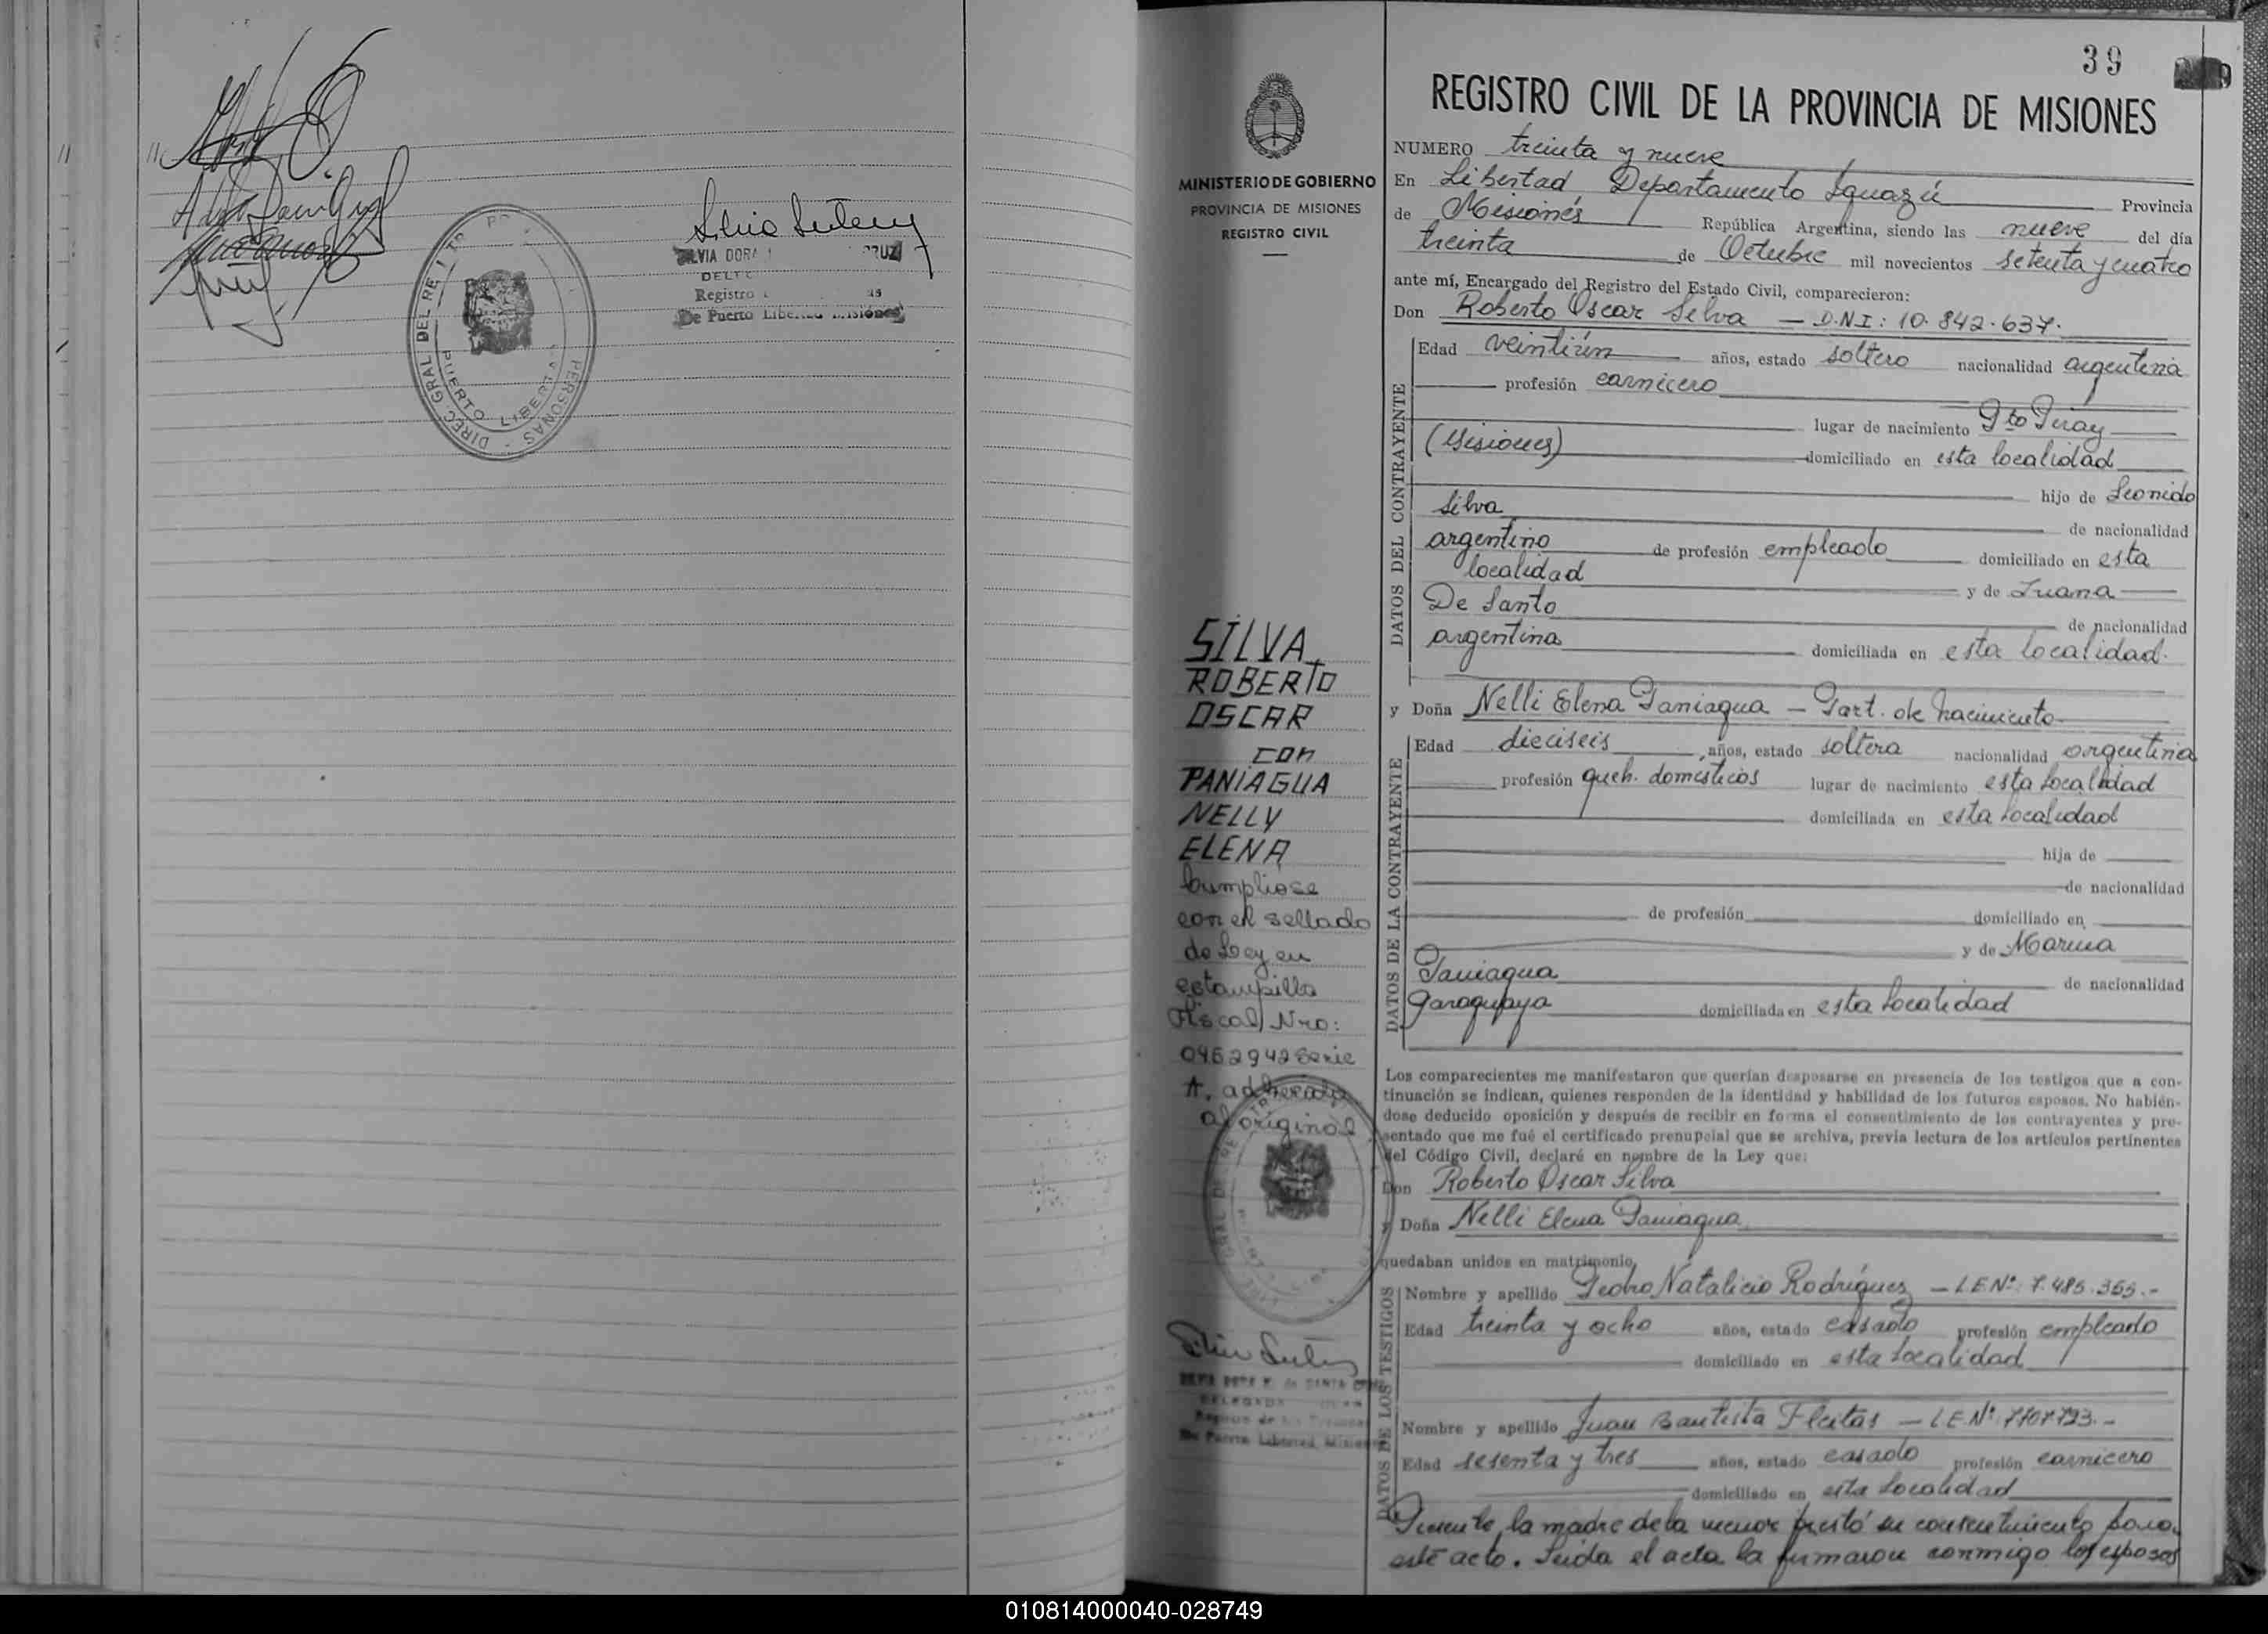 Silvia Dora
DELE
Registro
De Puerto Libertad Misiones
DIREC. GRAL. DEL REGISTRO PERSONAS
PUERTO LIBERTAD
39
REGISTRO CIVIL DE LA PROVINCIA DE MISIONES
MINISTERIO DE GOBIERNO
PROVINCIA DE MISIONES
REGISTRO CIVIL
SILVA
ROBERTO
OSCAR
con
PANIAGUA
NELLY
ELENA
Cumpliose
con el sellado
de Ley en
estampilla
Fiscal Nro:
0452942 Serie
A. adherida
al original
NUMERO treinta y nueve
En Libertad Departamento Iguazú Provincia
de Misiones República Argentina, siendo las nueve del día
treinta de Octubre mil novecientos setenta y cuatro
ante mí, Encargado del Registro del Estado Civil, comparecieron:
Don Roberto Oscar Silva — D.N.I: 10.842.637.
DATOS DEL CONTRAYENTE
Edad veintiún años, estado soltero nacionalidad argentina
profesión carnicero
lugar de nacimiento Pto Piray
(Misiones) domiciliado en esta localidad
hijo de Leonido
Silva de nacionalidad
argentino de profesión empleado domiciliado en esta
localidad y de Juana
De Santo de nacionalidad
argentina domiciliada en esta localidad.
y Doña Nelli Elena Paniagua — Part. de nacimiento
DATOS DE LA CONTRAYENTE
Edad dieciseis años, estado soltera nacionalidad argentina
profesión queh. domésticos lugar de nacimiento esta localidad
domiciliada en esta localidad
hija de
de nacionalidad
de profesión domiciliado en
y de Marina
Paniagua de nacionalidad
Paraguaya domiciliada en esta localidad
Los comparecientes me manifestaron que querían desposarse en presencia de los testigos que a con-
tinuación se indican, quienes responden de la identidad y habilidad de los futuros esposos. No habién-
dose deducido oposición y después de recibir en forma el consentimiento de los contrayentes y pre-
sentado que me fué el certificado prenupcial que se archiva, previa lectura de los artículos pertinentes
del Código Civil, declaré en nombre de la Ley que:
Don Roberto Oscar Silva
y Doña Nelli Elena Paniagua
quedaban unidos en matrimonio.
DATOS DE LOS TESTIGOS
Nombre y apellido Pedro Natalicio Rodríguez — L.E.Nº: 7.485.355.-
Edad treinta y ocho años, estado casado profesión empleado
domiciliado en esta localidad
Nombre y apellido Juan Bautista Fleitas — L.E.Nº 7707793.-
Edad sesenta y tres años, estado casado profesión carnicero
domiciliado en esta localidad
Presente la madre de la menor prestó su consentimiento para
este acto. Leida el acta la firmaron conmigo los esposos
010814000040-028749